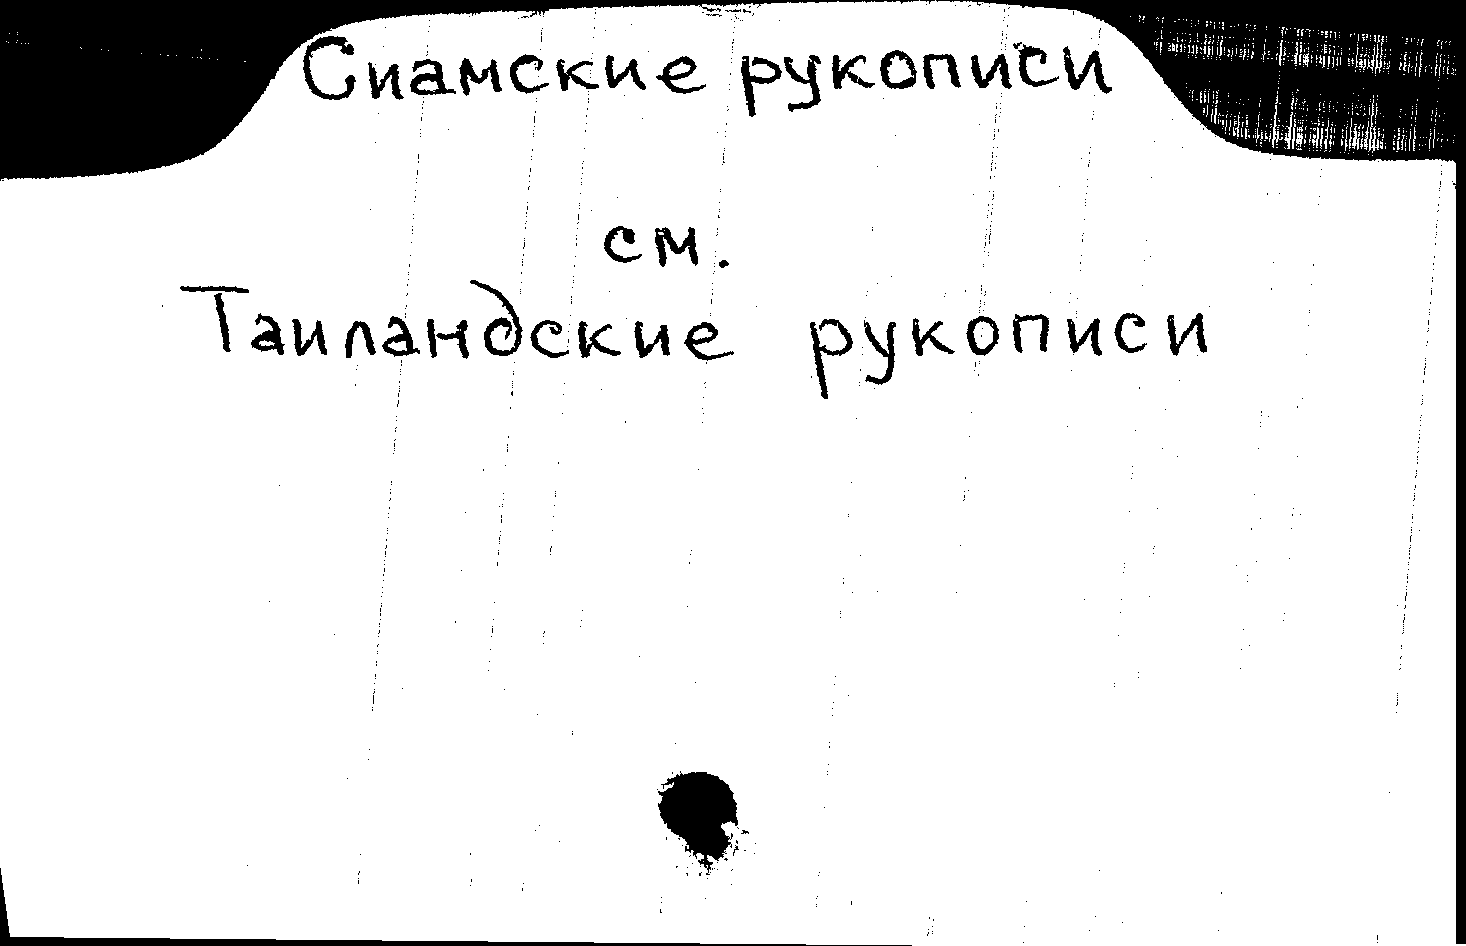 Сиамские рукописи
см.
Таиландские рукописи